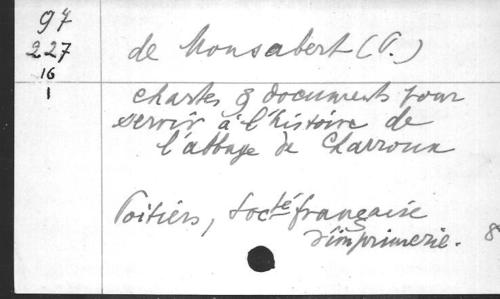 97
227
16
1
de Monsabert (P.)
chartes & documents pour
servir à l'histoire de
l'abbaye de Charroux
Poitiers, Socté française
d'imprimerie. 8